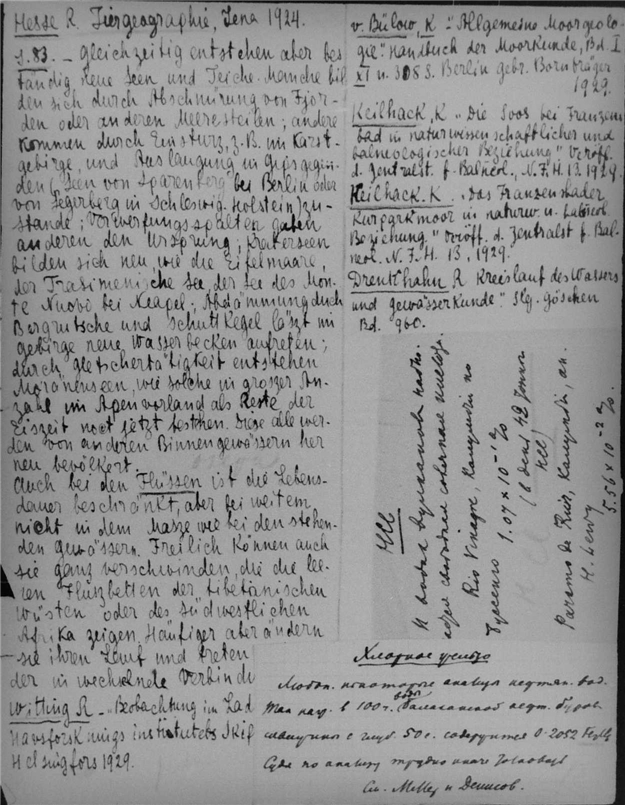 Hesse R. Tiergeographie, Jena 1924.
S. 83. — Gleichzeitig entstehen aber bes
tändig neue Seen und Teiche. Manche bil
den sich durch Abschnürung von Fjor-
den oder anderen Meeresteilen; andere
kommen durch Einsturz, z.B. im Karst-
gebirge, und Auslaugung in Gipsgegen
den (Seen von Sparenberg bei Berlin oder
von Segerberg in Schleswig-Holstein) zu-
stande; Verwerfungsspalten gaben
anderen den Ursprung; Kraterseen
bilden sich neu, wie die Eifelmaare,
der Trasimenische See, der See des Mon-
te Nuovo bei Neapel; Abdämmung durch
Bergrutsche und Schuttkegel läszt im
gebirge neue Wasserbecken auftreten;
durch gletschertätigkeit entstehen
Moränenseen, wie solche in groszer An-
zahl im Apenvorland als Reste der
Eiszeit noch jetzt bestehen. Diese alle wer-
den von anderen Binnengewässern her
neu bevölkert.
Auch bei den Flüssen ist die Lebens-
dauer beschränkt, aber bei weitem
nicht in dem Masze wie bei den stehen-
den gewässern. Freilich können auch
sie ganz verschwinden, die die lee-
ren Fluszbetten der tibetanischen
Wüsten oder des südwestlichen
Afrika zeigen. Häufiger aber ändern
sie ihren Lauf und treten
der in wechselnde Verbindu
Witting R — "Beobachtung im Lad
Havsforsknings institutets Skif
Helsingfors 1929.
v. Bülow, K. "Allgemeine Moorgeolo-
gie" Handbuch der Moorkunde, Bd. I
XI u. 308 S. Berlin gebr. Bornträger
1929.
Keilhack, K "Die Soos bei Franzens
bad in naturwissenschaftlicher und
balneologischer Beziehung" Veröff.
d. Zentralst. f. Balneol., N.F. H. 13. 1929.
Keilhack. K. "Das Franzensbader
Kurparkmoor in naturw. u.
Beziehung" Veröff. d. Zentralst f. Bal-
neol. N.F. H. 13, 1929.
R Kreislauf des Wassers
und gewässerkunde". Slg. göschen
Bd. 960.
HCl
И водах вулканов
свободная соляная кислота
Rio Vinagre, Колумбия по
1.07 × 10⁻¹ %
HCl)
Paramo de Ruiz, Колумбия, ан.
H. Lewy
5.56 × 10⁻² %
Хлорное железо
Любоп. некоторые анализы нефтян. вод.
Так напр. в 100 г. воды балаханской нефт. буров
скважины с глуб. 50 с. содержится 0.2052
Судя по анализу трудно
См.